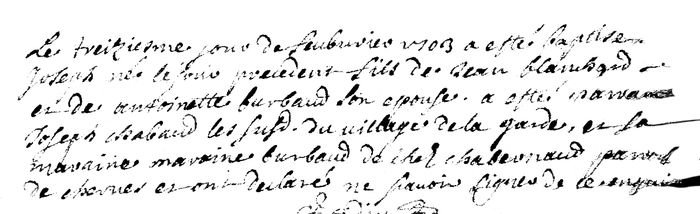 Le treiziesme jour de feubvrier 1703 a esté baptisé
Joseph né le jour precedent fils de Jean blanchard
et de antoinette burbaud son epouse. a esté parrain
Joseph chabaud les susd. du village de la garde, et sa
maraine maraine burbaud de chez chabernaud paroiss
de chernes et ont declaré ne savoir signer de ce enquis